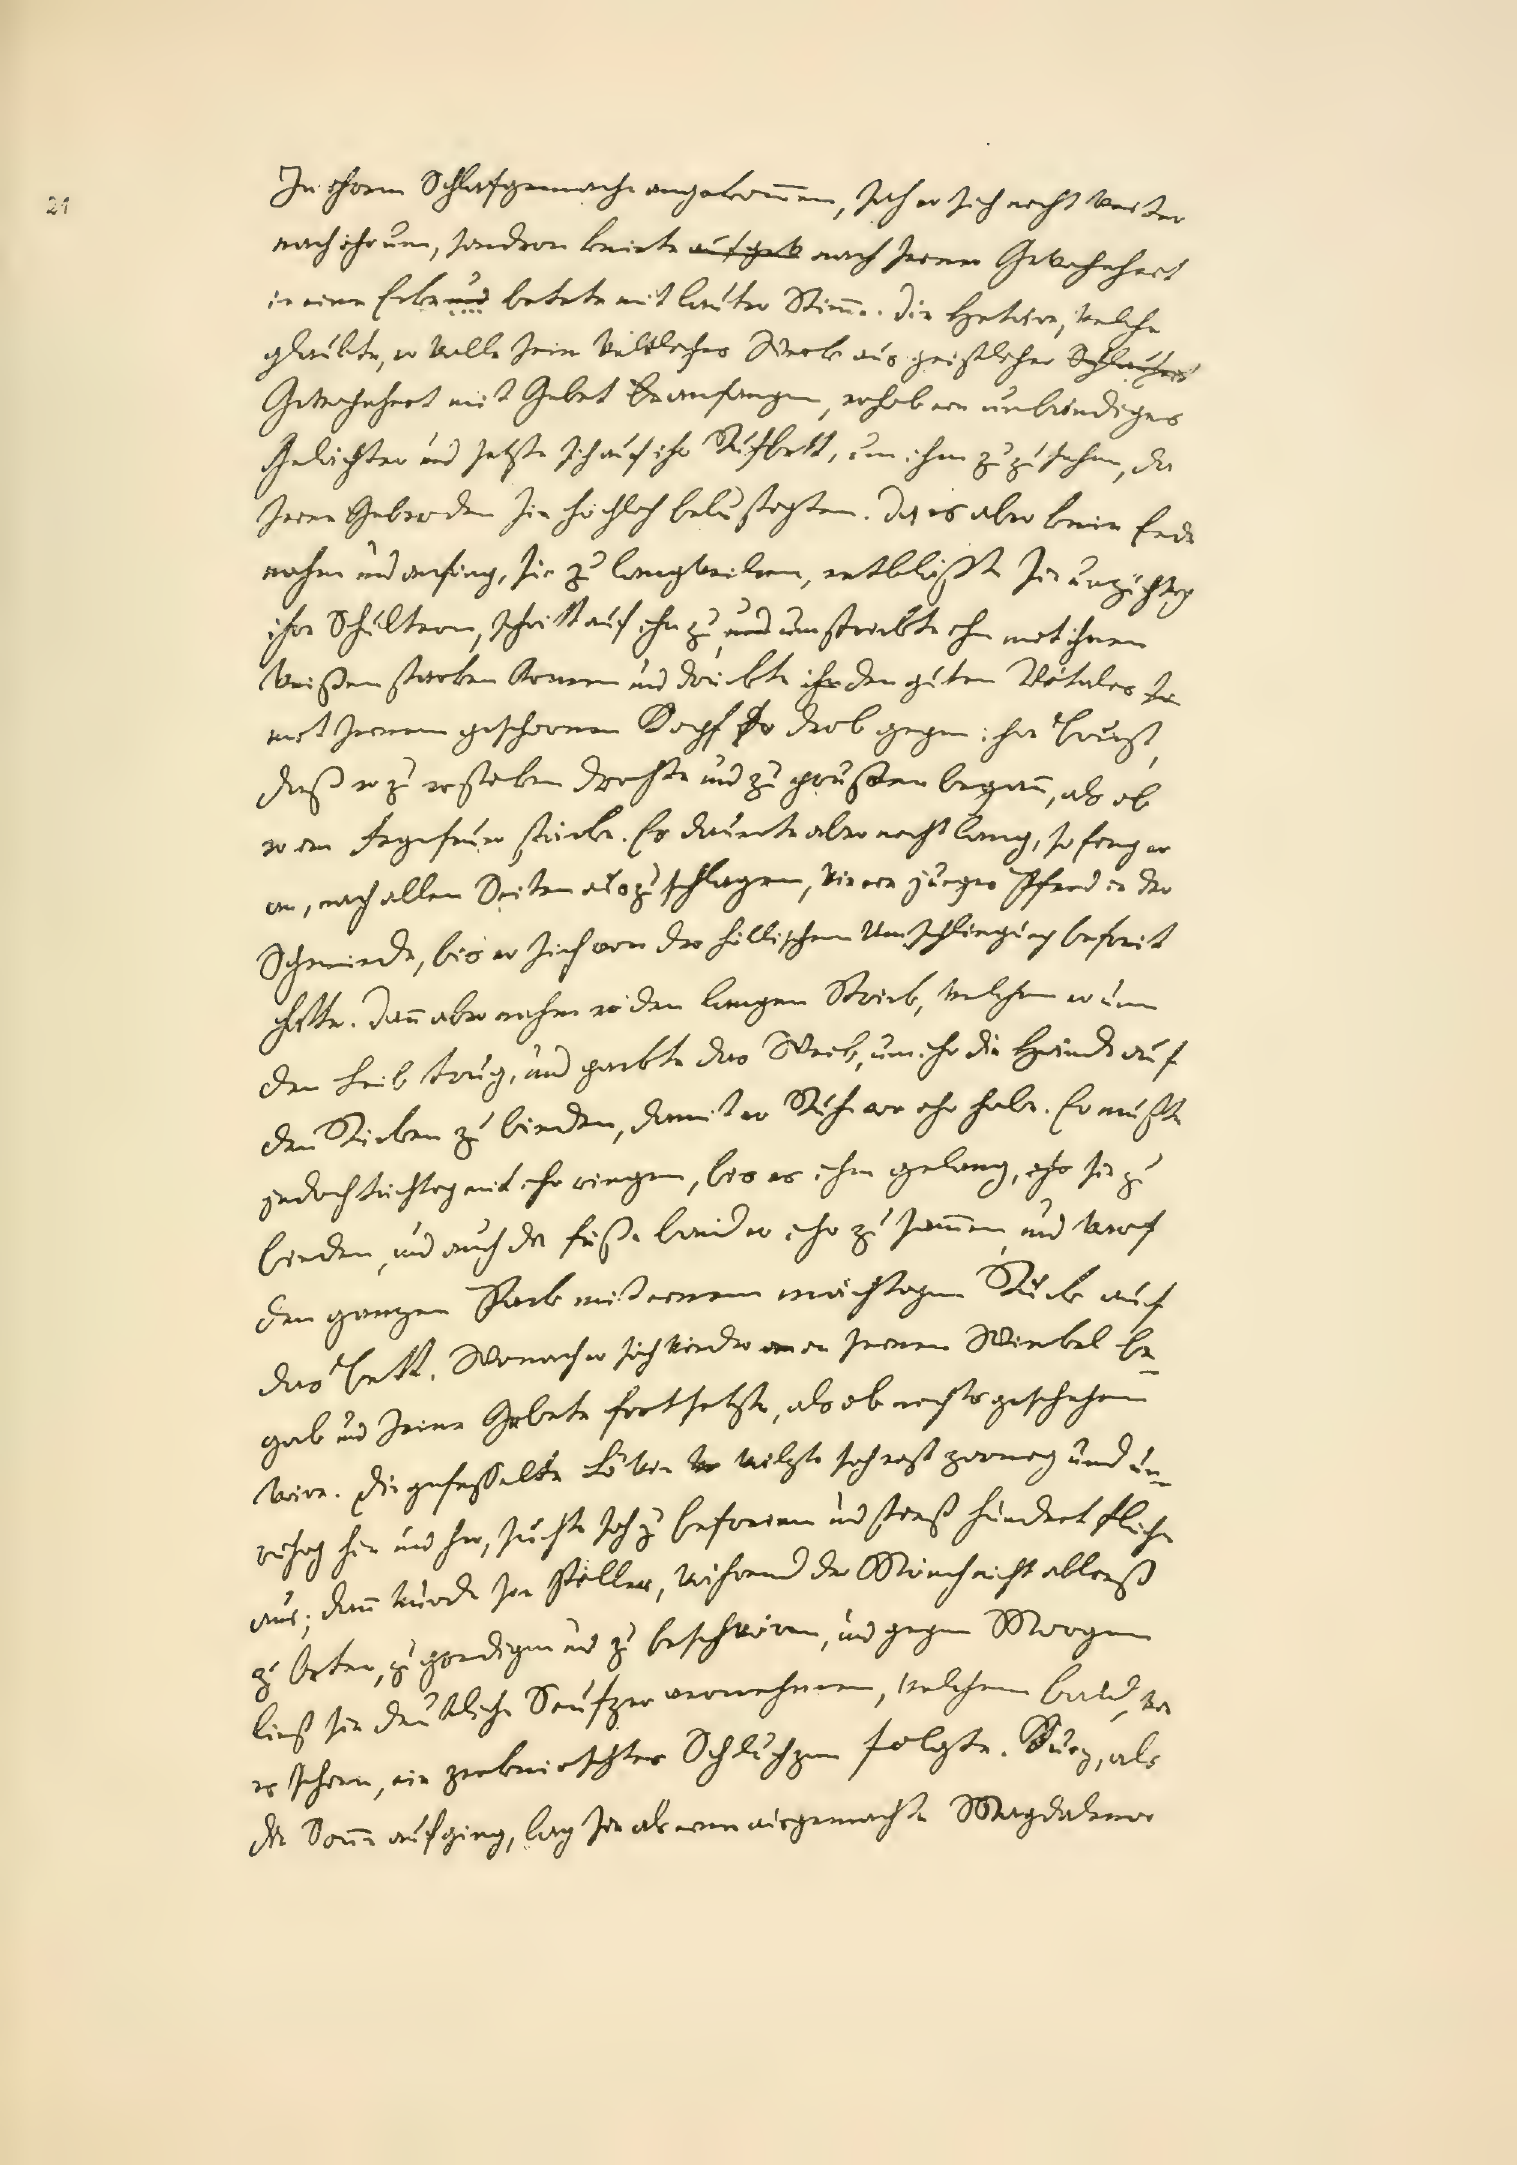 21
In ihrem Schlafgemache angekommen, sah er sich nicht weiter
nach ihr um, sondern kniete aufgeb nach seiner Gewohnheit
in eine Ecke und betete mit lauter Stimme. Die Hetäre, welche
glaubte, er wolle sein weltliches Werk aus geistlicher Schlauheit
Gewohnheit mit Gebet beanfangen, erhob ein unbändiges
Gelächter und setzte sich auf ihr Ruhbett, um ihm zuzusehen, da
seine Geberden sie höchlich belustigten. Da es aber kein Ende
nahm und anfing, sie zu langweilen, entblößte sie unzüchtig
ihre Schultern, schritt auf ihn zu, und umstrickte ihn mit ihren
weißen starken Armen und drückte ihr den guten Vitalis
mit seinem geschornen Kopf so derb gegen ihre Brust,
daß er zu ersticken drohte und zu prusten begann, als ob
er im Fegefeuer stäcke. Es dauerte aber nicht lang, so fing er
an, nach allen Seiten auszuschlagen, wie ein junges Pferd in der
Schmiede, bis er sich von der höllischen Umschlingung befreit
hatte. Dann aber nahm er den langen Strick, welchen er um
den Leib trug, und packte das Weib, um ihr die Hände auf
den Rücken zu binden, damit er Ruhe vor ihr habe. Er mußte
jedoch tüchtig mit ihr ringen, bis es ihm gelang, ihr sie zu
binden, und auch die Füße band er ihr zusammen, und warf
den ganzen Pack mit einem mächtigen Rucke auf
das Bett. Wonach er sich wieder in seinen Winkel be-
gab und seine Gebete fortsetzte, als ob nichts geschehen
wäre. Die gefesselte Löwin wälzte sich erst zornig und un-
ruhig hin und her, suchte sich zu befreien und stieß hundert Flüche
aus; dann wurde sie stiller, während der Mönch nicht abließ
zu beten, zu predigen und zu beschwören, und gegen Morgen
ließ sie deutliche Seufzer vernehmen, welchen bald, wie
es schien, ein zerknirschtes Schluchzen folgte. Kurz, als
die Sonne aufging, lag sie als eine ausgemachte Magdalene